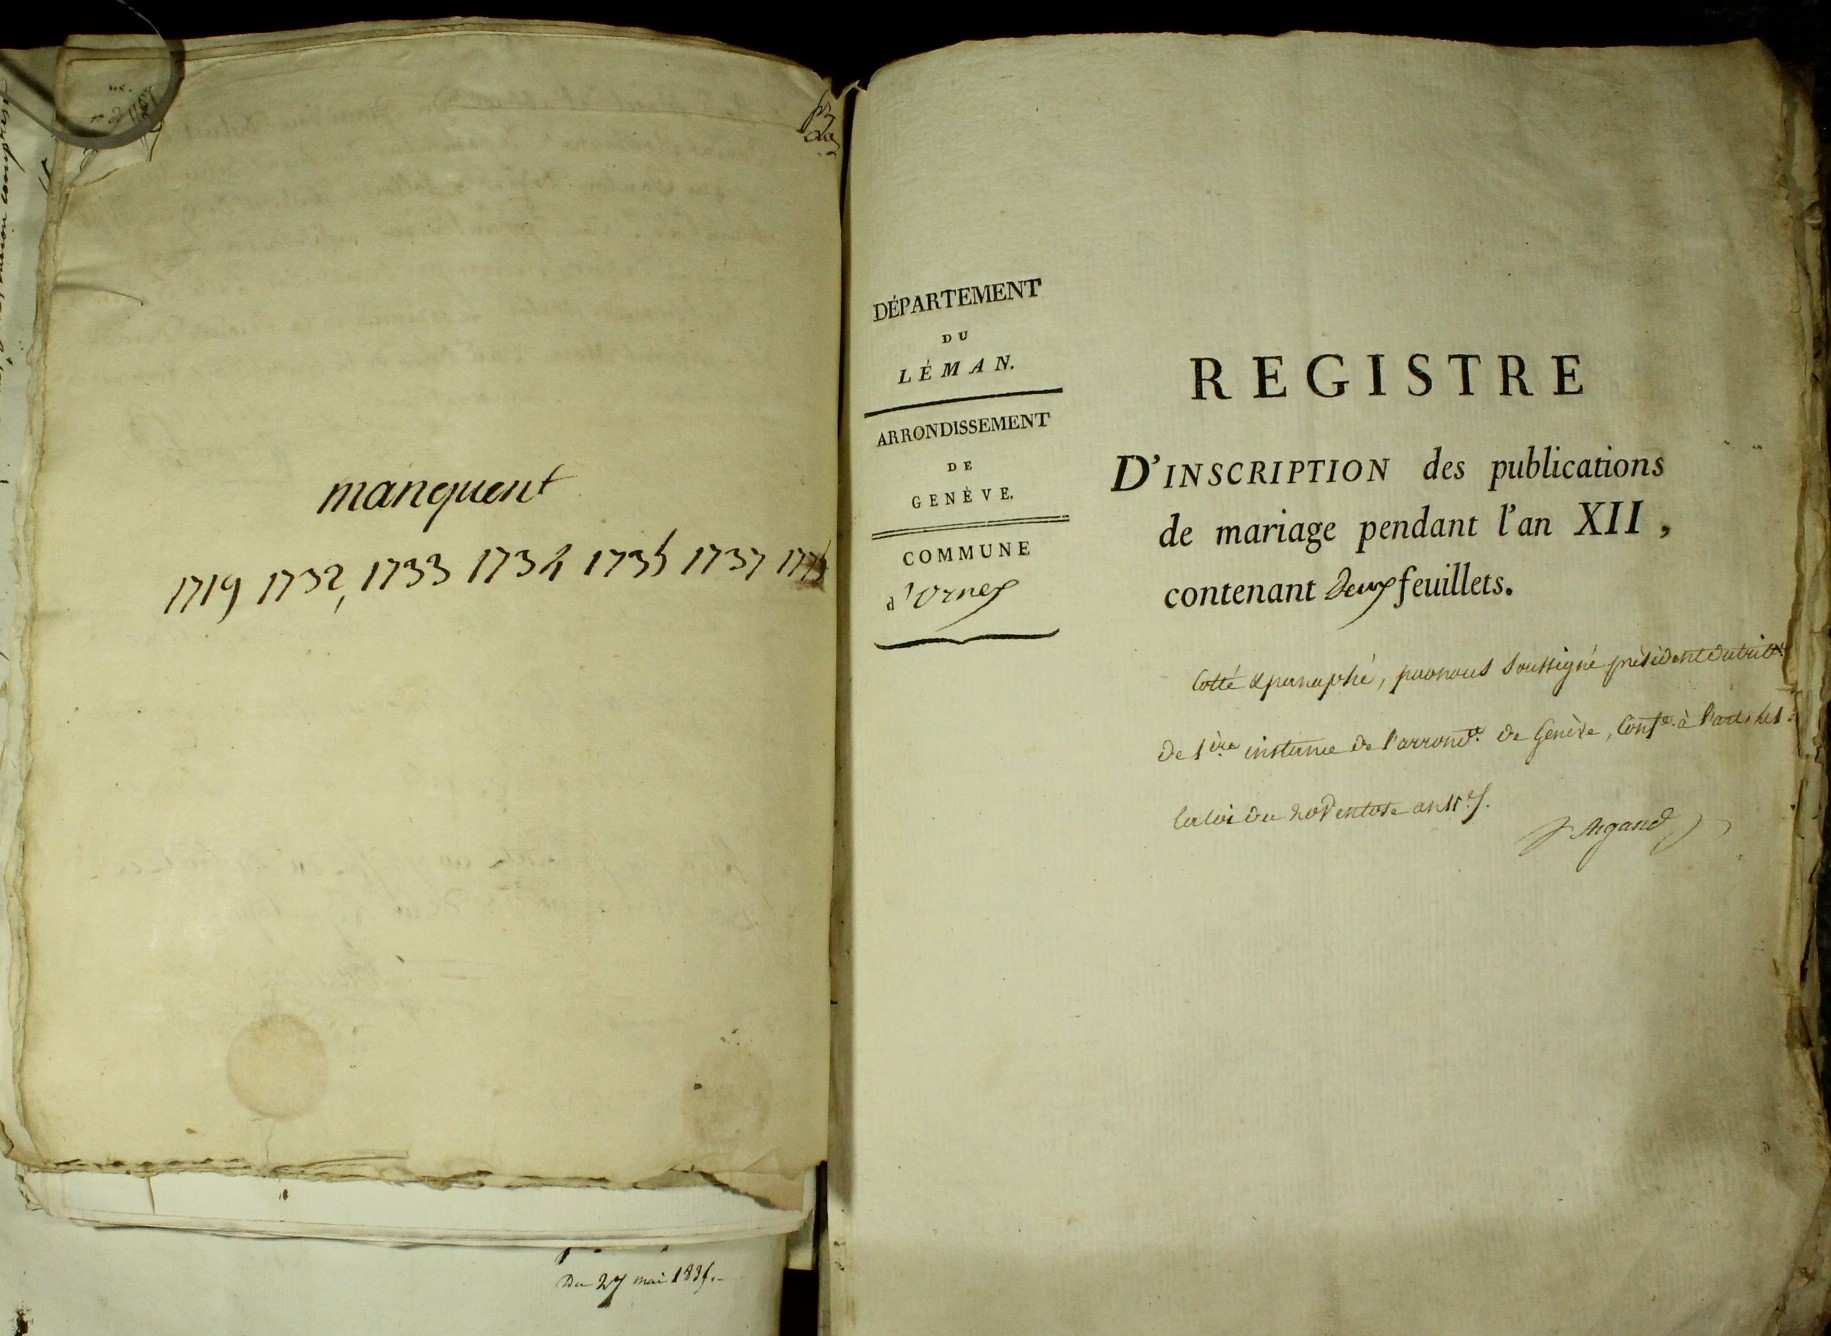 manquent
1719 1732, 1733 1734 1735 1737
DÉPARTEMENT
DU
LÉMAN.
ARRONDISSEMENT
DE
GENÈVE.
COMMUNE
d'Ornex
REGISTRE
D'INSCRIPTION des publications
de mariage pendant l'an XII,
contenant deux feuillets.
Cotté & paraphé, par nous soussigné président du
de 1ère instance de l'arrond.t de Genève, Conf.t à
la loi du 20 Ventose an 11
Argand
Du 27 mai